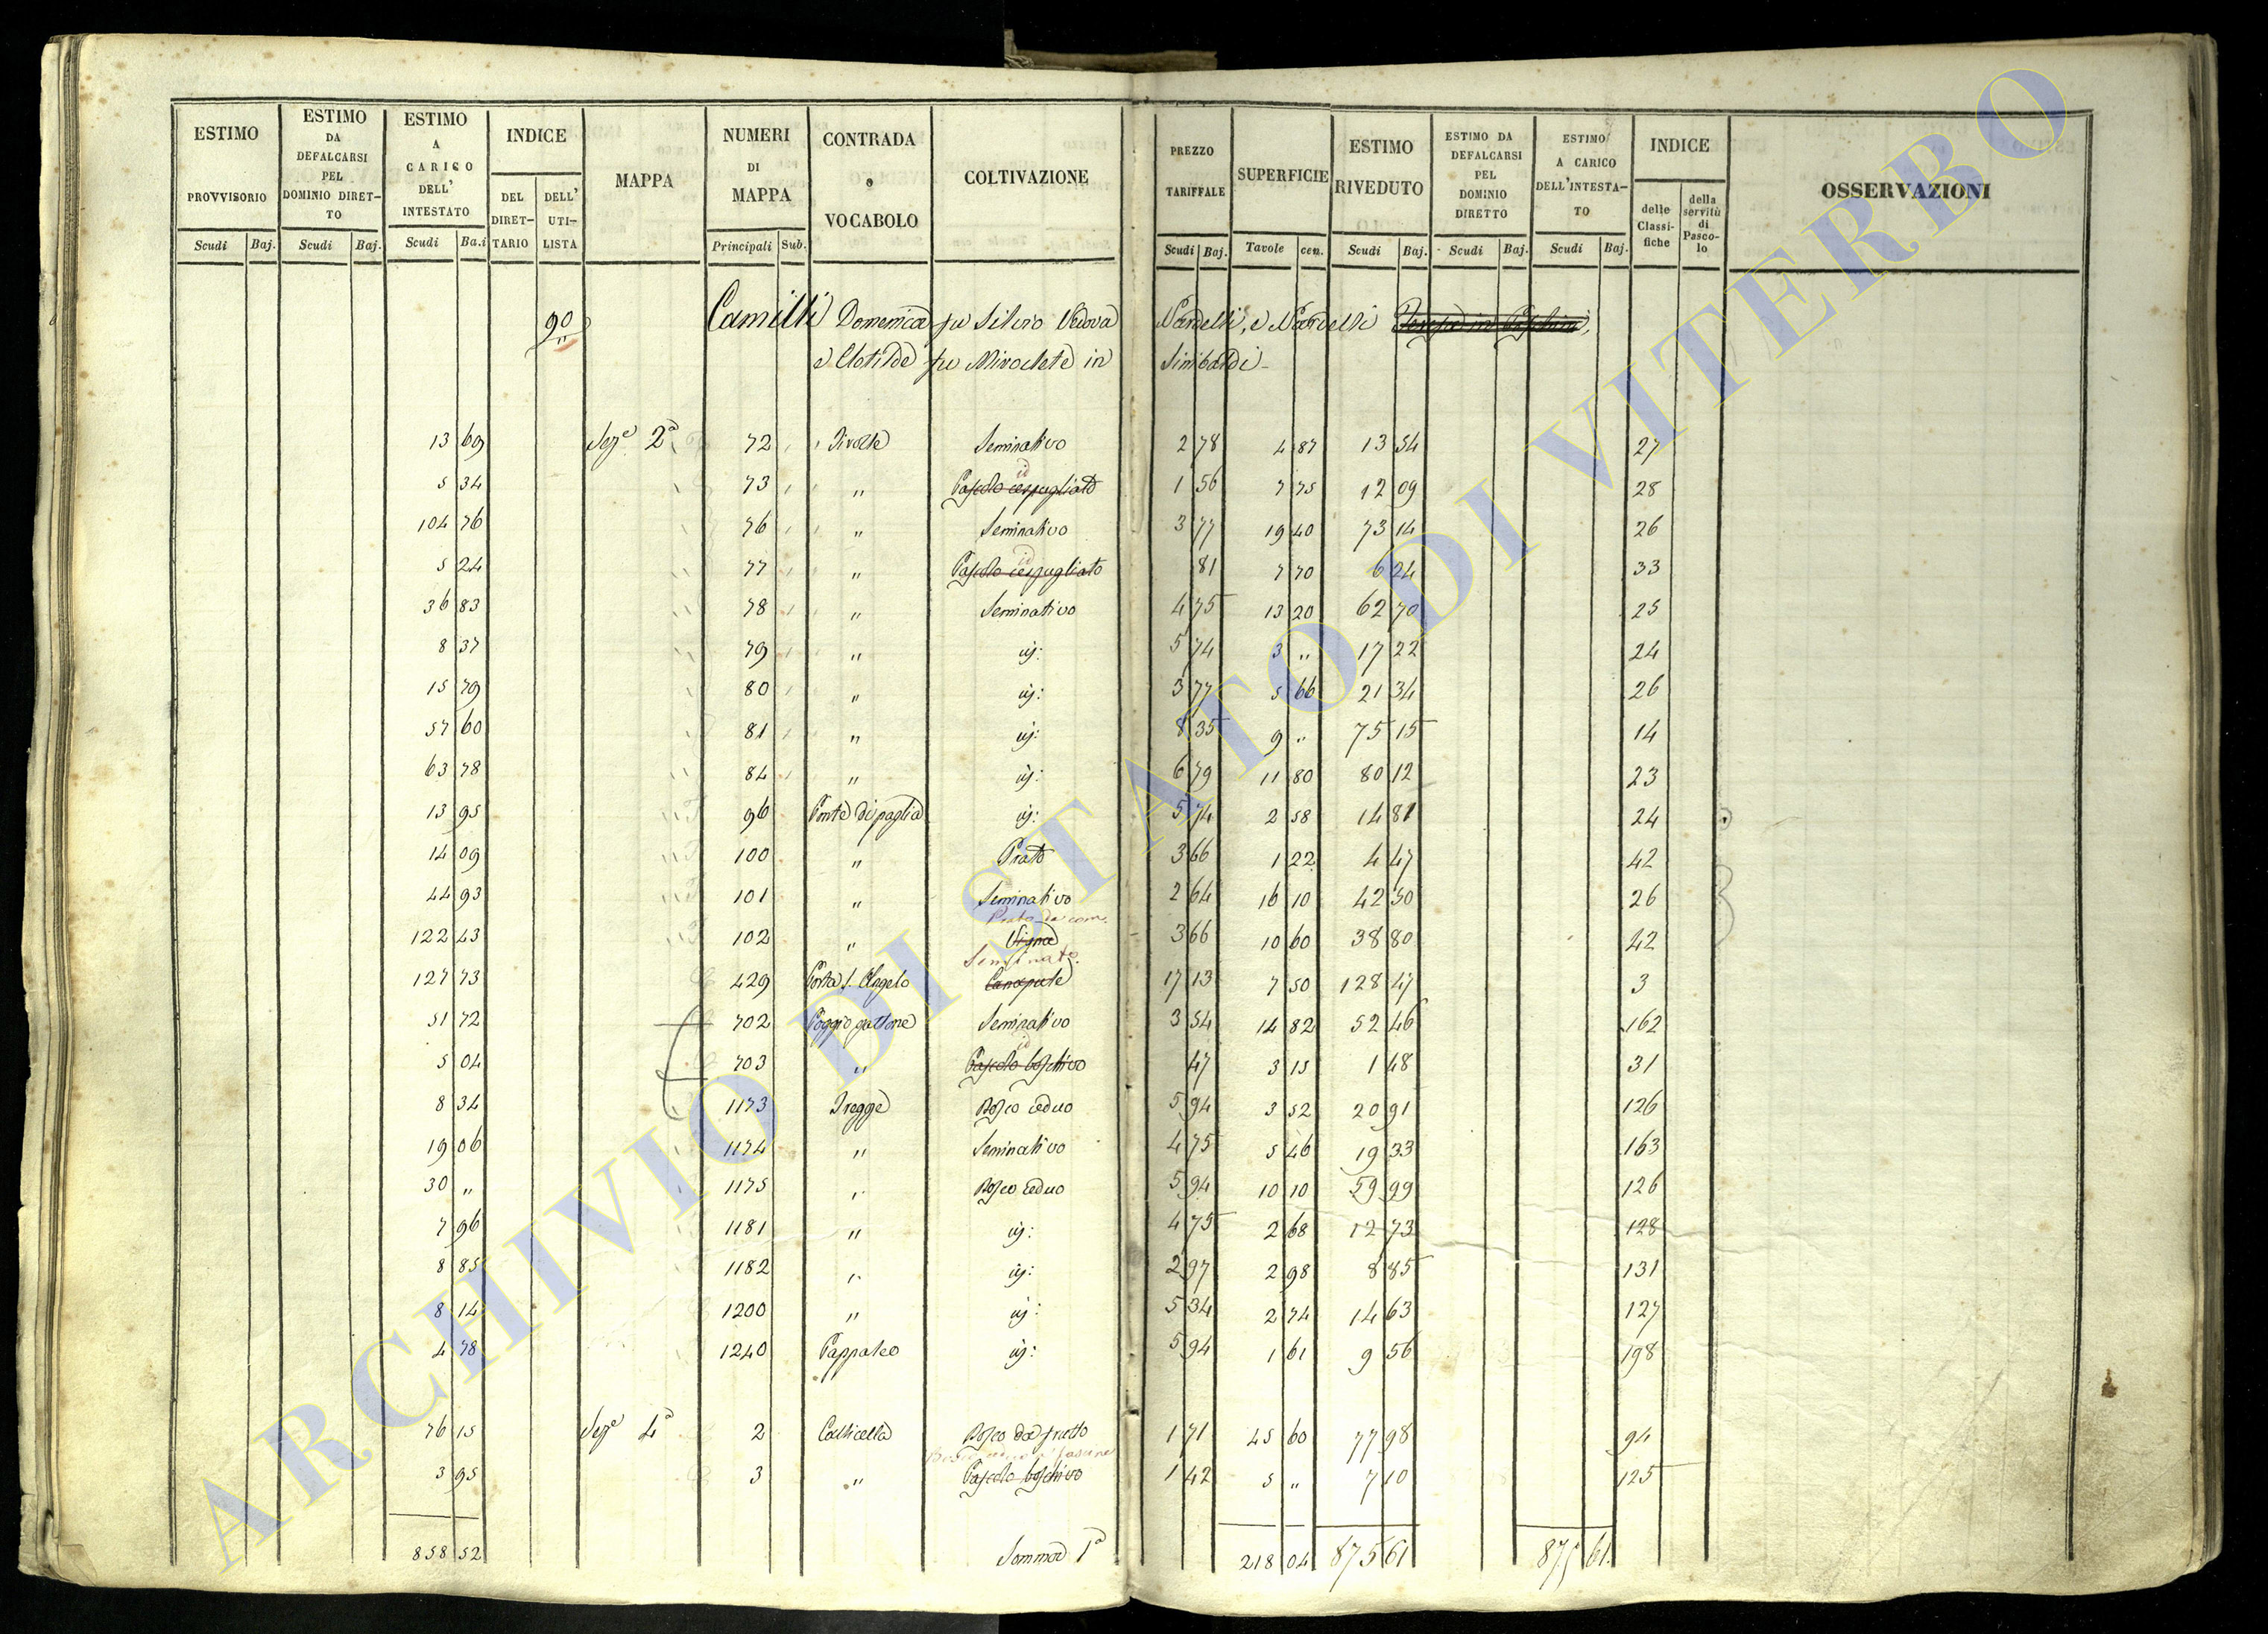 ESTIMO PROVVISORIO Scudi Baj. | ESTIMO DA DEFALCARSI PEL DOMINIO DIRET-TO Scudi Baj. | ESTIMO A CARICO DELL' INTESTATO Scudi Ba.i | INDICE DEL DIRET-TARIO DELL' UTI-LISTA | MAPPA | NUMERI DI MAPPA Principali Sub. | CONTRADA o VOCABOLO | COLTIVAZIONE | PREZZO TARIFFALE Scudi Baj. | SUPERFICIE Tavole cen. | ESTIMO RIVEDUTO Scudi Baj. | ESTIMO DA DEFALCARSI PEL DOMINIO DIRETTO Scudi Baj. | ESTIMO A CARICO DELL'INTESTA-TO Scudi Baj. | INDICE delle Classi-fiche della servitù di Pasco-lo | OSSERVAZIONI
90 Camilli Domenica fu Silvio Vedova Nardelli, e Nardelli
e Clotilde fu Miroclete in Sinibaldi
13 69 Sez.e 2a 72 Tivolle Seminativo 2 78 4 87 13 54 27
5 34 73 " id Pascolo cespugliato 1 56 7 75 12 09 28
104 76 76 " Seminativo 3 77 19 40 73 14 26
5 24 77 " id Pascolo cespugliato 81 7 70 6 24 33
36 83 78 " Seminativo 4 75 13 20 62 70 25
8 37 79 " id: 5 74 3 " 17 22 24
15 79 80 " id: 3 77 5 66 21 34 26
57 60 81 " id: 8 35 9 " 75 15 14
63 78 84 " id: 6 79 11 80 80 12 23
13 95 96 Ponte di paglia id: 5 74 2 58 14 81 24
14 09 100 " Prato 3 66 1 22 4 47 42
44 93 101 " Seminativo 2 64 16 10 42 50 26
Prato da
122 43 102 " Vigna 3 66 10 60 38 80 42
Seminato.
127 73 429 Porta S. Angelo Canapule 17 13 7 50 128 47 3
51 72 702 Poggio gattone Seminativo 3 54 14 82 52 46 162
5 04 703 " id Pascolo boschivo 47 3 15 1 48 31
8 34 1173 Tregge Bosco ceduo 5 94 3 52 20 91 126
19 06 1174 " Seminativo 4 75 5 46 19 33 163
30 " 1175 " Bosco ceduo 5 94 10 10 59 99 126
7 96 1181 " id: 4 75 2 68 12 73 128
8 85 1182 " id: 2 97 2 98 8 85 131
8 14 1200 " id: 5 34 2 74 14 63 127
4 78 1240 Pappaleo id: 5 94 1 61 9 56 198
76 15 Sez.e 4a 2 Collicella Bosco da frutto 1 71 45 60 77 98 94
3 95 3 " Pascolo boschivo 1 42 5 " 7 10 125
858 52 Somma 1a 218 04 875 61 875 61
ARCHIVIO DI STATO DI VITERBO